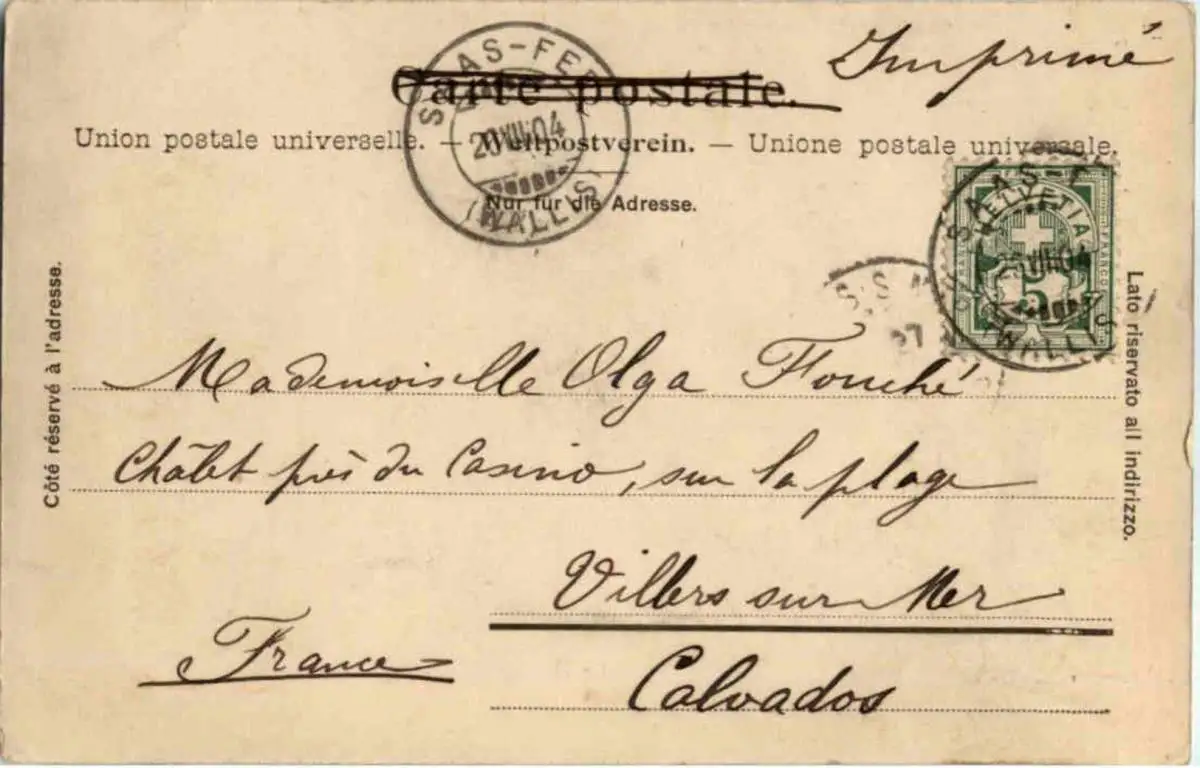 Imprimé
Carte postale.
Union postale universelle. — Weltpostverein. — Unione postale universale.
Nur für die Adresse.
SAAS-FEE
20 VIII 04
(WALLIS)
SAAS-F
HELVETIA
FRANCO
5
VIII 04
(WALLIS
S.S.M
27
Côté réservé à l'adresse.
Lato riservato all indirizzo.
Mademoiselle Olga Fouché
Châlet près du Casino, sur la plage
Villers sur Mer
France
Calvados